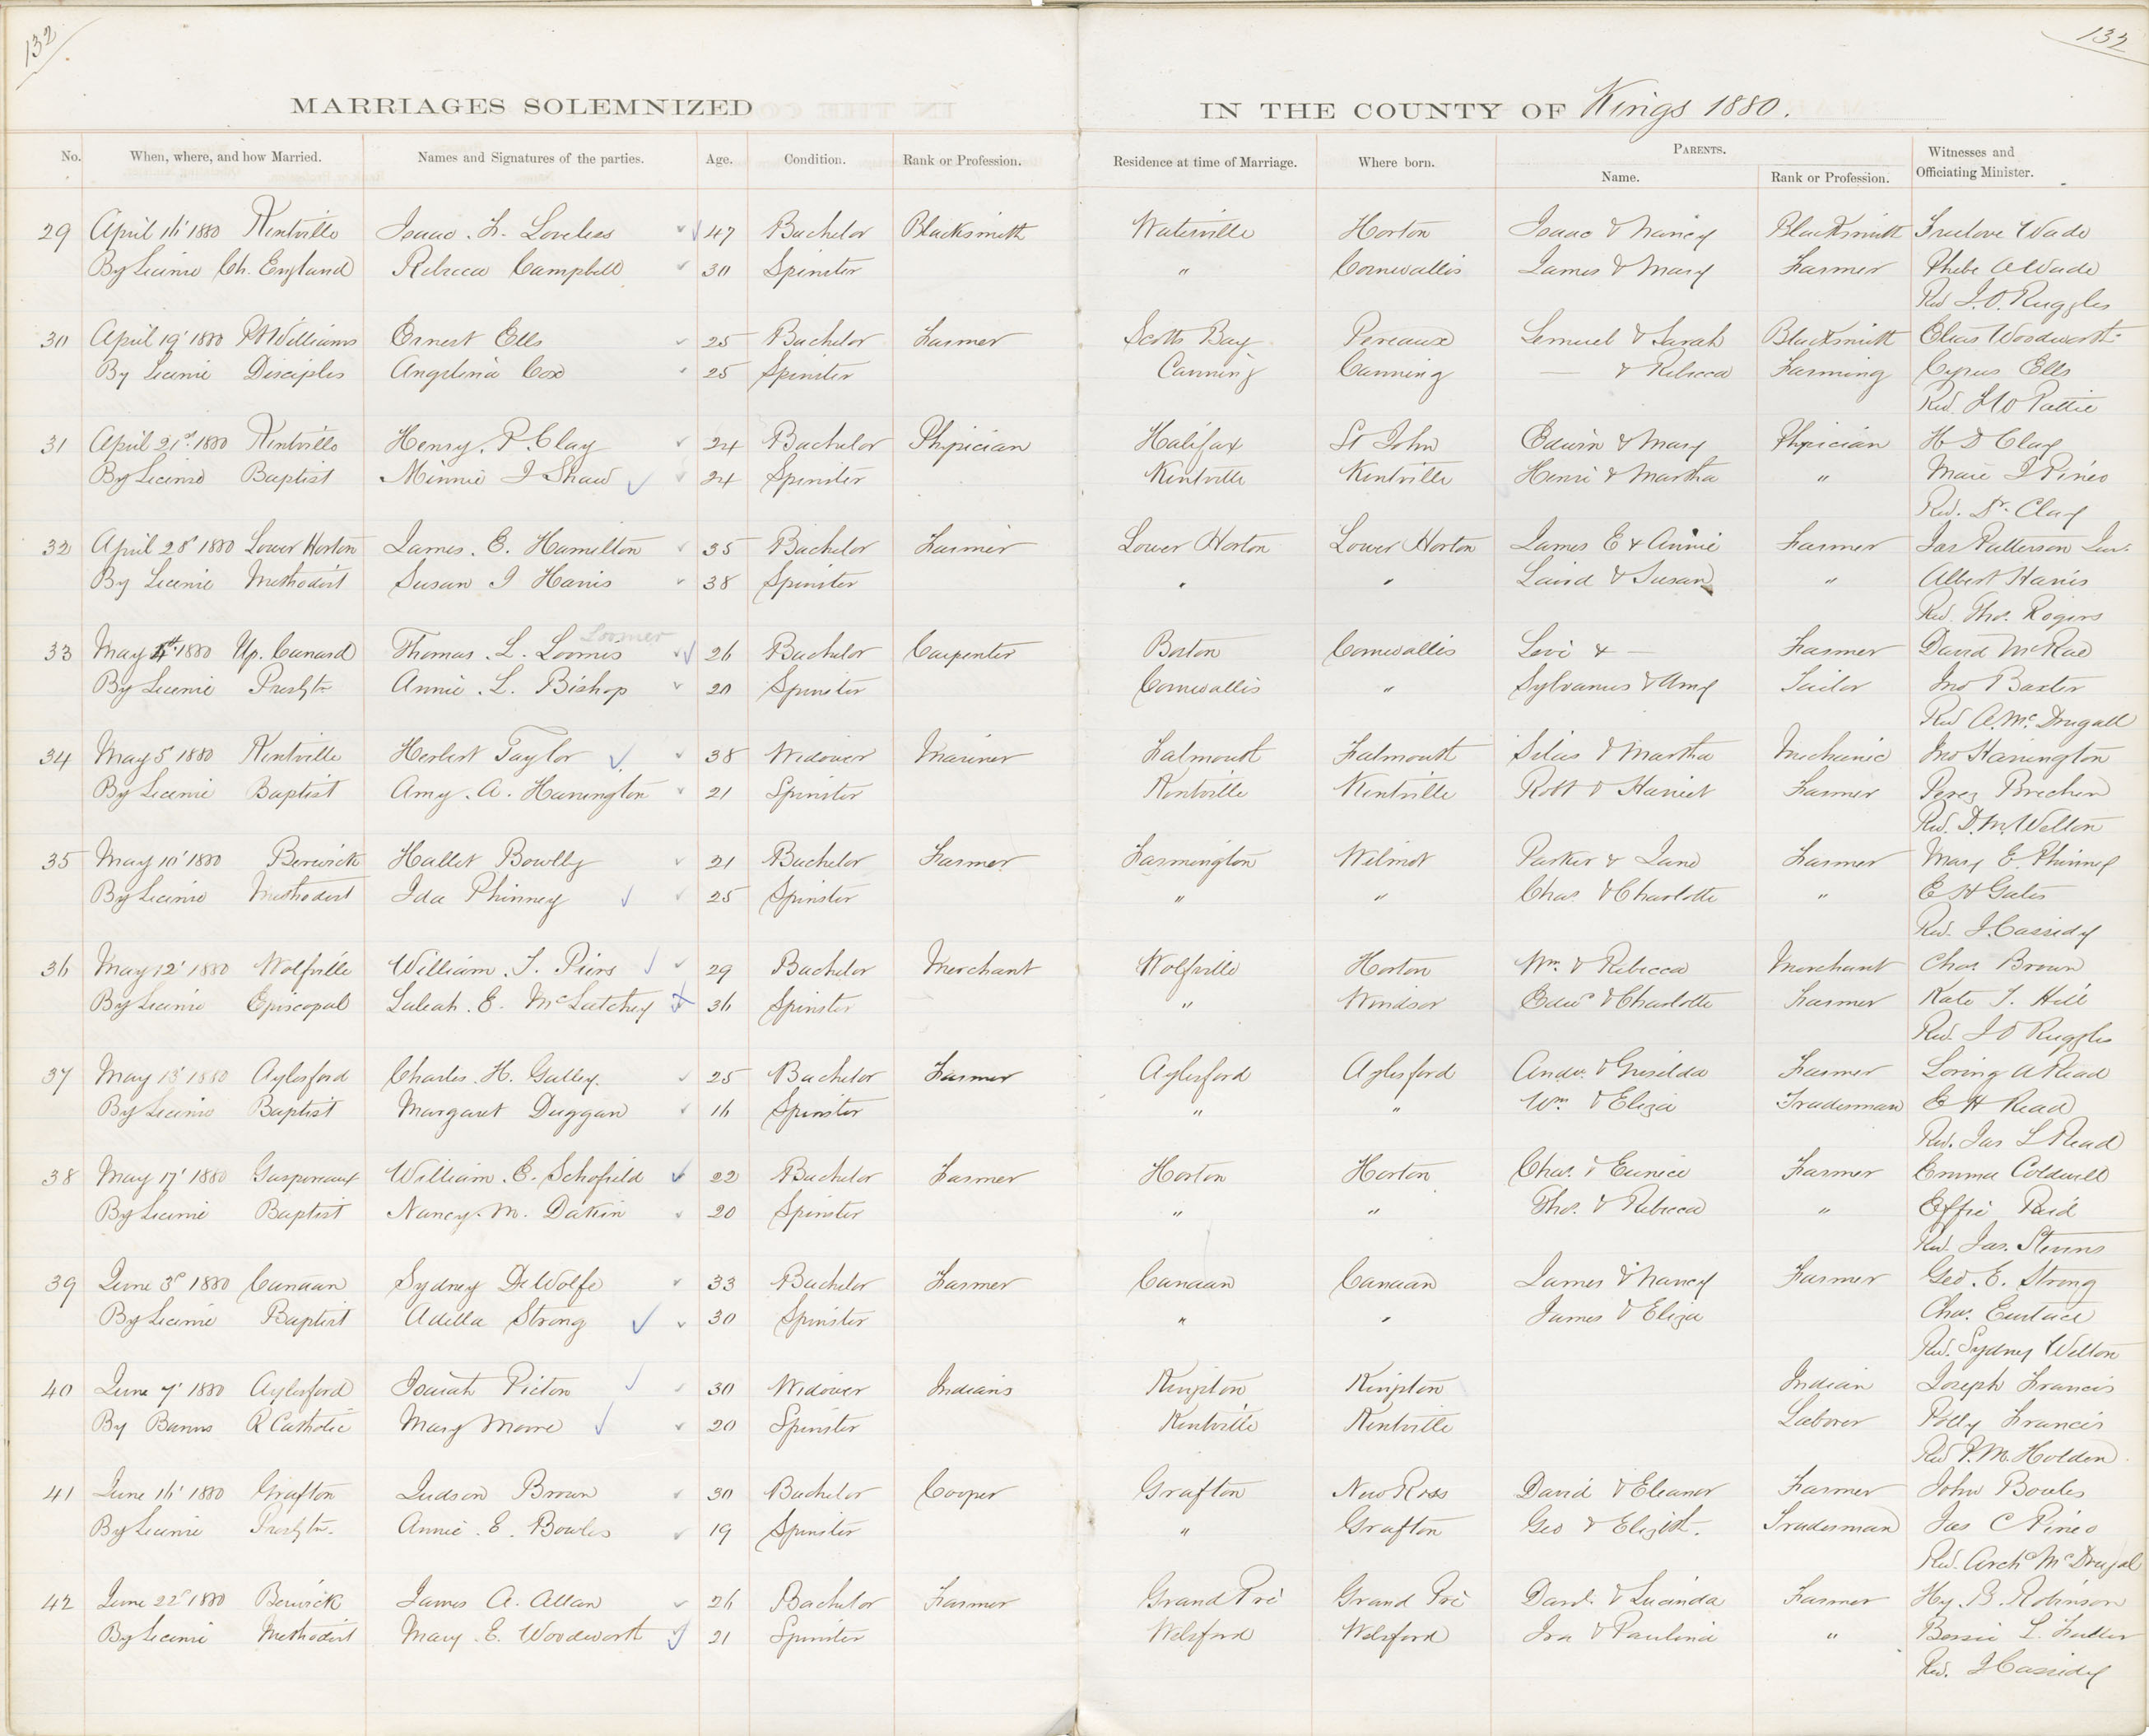 132
132
MARRIAGES SOLEMNIZED IN THE COUNTY OF Kings 1880.
No. When, where, and how Married. Names and Signatures of the parties. Age. Condition. Rank or Profession. Residence at time of Marriage. Where born. PARENTS. Name. Rank or Profession. Witnesses and Officiating Minister.
29 April 16' 1880 Kentville Isaac. L. Loveless 47 Bachelor Blacksmith Waterville Horton Isaac & Nancy Blacksmith Freelove Wade
By License Ch. England Rebecca Campbell 30 Spinster " Cornwallis James & Mary Farmer Phebe A Wade
Rev J. O. Ruggles
30 April 19' 1880 Pt Williams Ernest Ells 25 Bachelor Farmer Scotts Bay Pereaux Lemuel & Sarah Blacksmith Elias Woodworth
By License Disciples Angelina Cox 25 Spinster Canning Canning — & Rebecca Farming Cyrus Ells
Rev.
31 April 21st 1880 Kentville Henry. P. Clay 24 Bachelor Physician Halifax St John Edwin & Mary Physician H D Clay
By License Baptist Minnie I Shaw 24 Spinster Kentville Kentville Henri & Martha " I Pineo
Rev. Dr. Clay
32 April 28' 1880 Lower Horton James. E. Hamilton 35 Bachelor Farmer Lower Horton Lower Horton James E & Annie Farmer Jas Patterson Jun.
By License Methodist Susan I Harris 38 Spinster " " Laird & Susan " Albert Harris
Rev. Thos. Rogers
Loomer
33 May 4th 1880 Up. Canard Thomas. L. Loomis 26 Bachelor Carpenter Boston Cornwallis Levi & — Farmer David McRae
By License Presbytn Annie. L. Bishop 20 Spinster Cornwallis " Sylvanus & Amy Sailor Jno Baxter
Rev A. McDougall
34 May 5' 1880 Kentville Herbert Taylor 38 Widower Mariner Falmouth Falmouth Silas & Martha Mechanic Jno Harrington
By License Baptist Amy. A. Harrington 21 Spinster Kentville Kentville Robt & Harriet Farmer Perez
Rev. D. M. Welton
35 May 10' 1880 Berwick Hallet Bowlby 21 Bachelor Farmer Farmington Wilmot Parker & Jane Farmer Mary E. Phinney
By License Methodist Ida Phinney 25 Spinster " " Chas. & Charlotte " E H Gates
Rev. J. Cassidy
36 May 12' 1880 Wolfville William. J. Piers 29 Bachelor Merchant Wolfville Horton Wm. & Rebecca Merchant Chas. Brown
By License Episcopal Saleah. E. McLatchey 36 Spinster " Windsor Edwd & Charlotte Farmer Kate J. Hill
Rev. J O Ruggles
37 May 13' 1880 Aylesford Charles. H. Galley. 25 Bachelor Farmer Aylesford Aylesford Andw. & Griselda Farmer Loring A Read
By License Baptist Margaret Duggan 16 Spinster " " Wm & Eliza Tradesman E H Read
Rev. Jas L Read
38 May 17' 1880 Gaspereaux William. E. Schofield 22 Bachelor Farmer Horton Horton Chas. & Eunice Farmer Emma Coldwell
By License Baptist Nancy. M. Dakin 20 Spinster " " Thos. & Rebecca " Effie Reid
Rev. Jas. Stevens
39 June 3d 1880 Canaan Sydney DeWolfe 33 Bachelor Farmer Canaan Canaan James & Nancy Farmer Geo. E. Strong
By License Baptist Adella Strong 30 Spinster " " James & Eliza Chas. Eustace
Rev. Sydney Welton
40 June 7' 1880 Aylesford Isaiah Picton 30 Widower Indians Kingston Kingston Indian Joseph Francis
By Banns R Catholic Mary Moore 20 Spinster Kentville Kentville Laborer Polly Francis
Rev P. M. Holden.
41 June 16' 1880 Grafton Judson Brown 30 Bachelor Cooper Grafton New Ross David & Eleanor Farmer John Bowles
By License Presbytn. Annie. E. Bowles 19 Spinster " Grafton Geo & Elizbt. Tradesman Jas C Pineo
Rev. Archd McDougal
42 June 22d 1880 Berwick James A. Allan 26 Bachelor Farmer Grand Pré Grand Pré Davd. & Lucinda Farmer Hy. B. Robinson
By License Methodist Mary. E. Woodworth 21 Spinster Welsford Welsford Ira & Paulina " Bessie L. Fuller
Rev. J Cassidy